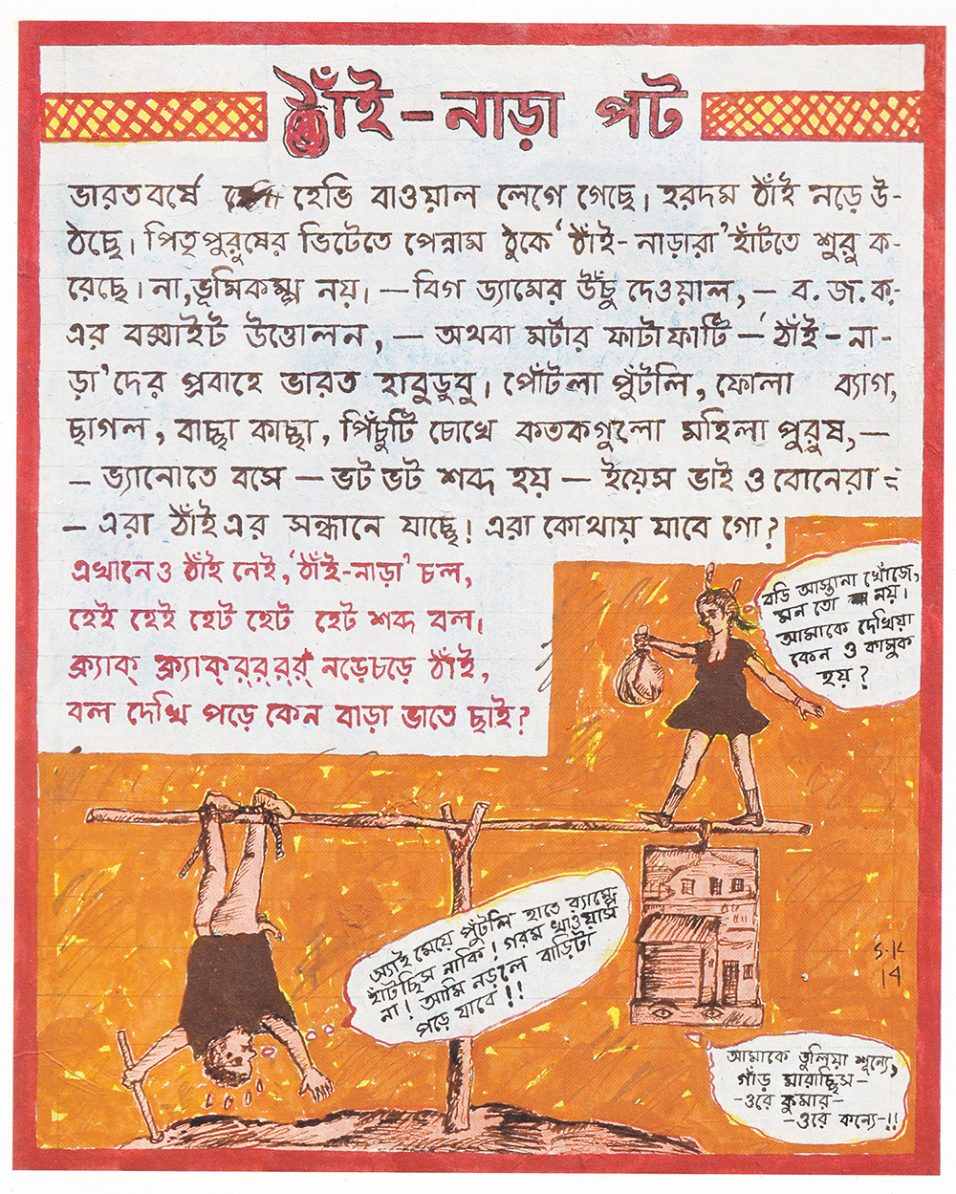 ঠাঁই-নাড়া পট
ভারতবর্ষে হেভি বাওয়াল লেগে গেছে। হরদম ঠাঁই নড়ে উ-
ঠছে। পিতৃপুরুষের ভিটেতে পেন্নাম ঠুকে ‘ঠাঁই-নাড়ারা’ হাঁটতে শুরু ক-
রেছে। না, ভূমিকম্প নয়। — বিগ ড্যামের উঁচু দেওয়াল, — ব. জ. ক.-
এর বক্সাইট উত্তোলন, — অথবা মর্টার ফাটাফাটি — ‘ঠাঁই-না-
ড়া’দের প্রবাহে ভারত হাবুডুবু। পোঁটলা পুঁটলি, ফোলা ব্যাগ,
ছাগল, বাচ্ছা কাচ্ছা, পিঁচুটি চোখে কতকগুলো মহিলা পুরুষ, —
— ভ্যানোতে বসে — ভট ভট শব্দ হয় — ইয়েস ভাই ও বোনেরা :
— এরা ঠাঁই এর সন্ধানে যাচ্ছে! এরা কোথায় যাবে গো?
এখানেও ঠাঁই নেই, ‘ঠাঁই-নাড়া’ চল,
হেই হেই হেট হেট হেট শব্দ বল।
ক্র্যাক্ ক্র্যাক্‌র্‌র্‌র্‌র্ নড়েচড়ে ঠাঁই,
বল দেখি পড়ে কেন বাড়া ভাতে ছাই?
বডি আস্তানা খোঁজে,
মন তো নয়।
আমাকে দেখিয়া
কেন ও কামুক
হয়?
অ্যাই মেয়ে পুঁটলি হাতে র‍্যাম্পে
হাঁটছিস নাকি! গরম খাওয়াস
না! আমি নড়লে বাড়িটা
পড়ে যাবে!!
S.K
14
আমাকে তুলিয়া শূন্যে,
গাঁড় মারাচ্ছিস—
-ওরে কুমার—
-ওরে কন্যে-!!